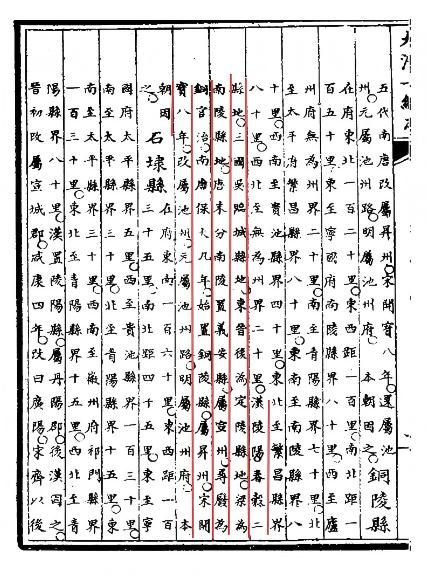 大清一統志
五代南唐改屬昇州宋開寶八年還屬池
州元屬池州路明屬池州府 本朝因之
銅陵縣
在府東北一百二十里東西距一百里南北距一
百五十里東至寧國府南陵縣界八十里西至廬
州府無為州界二十里南至青陽縣界七十里北
至太平府繁昌縣界八十里東南至南陵縣界八
十里西南至貴池縣界四十里東北至繁昌縣界
八十里西北至無為州界二十里漢陵陽春穀二
縣地三國吳臨城縣地東晉後為定陵縣地梁為
南陵縣地唐末分南陵置義安縣屬宣州尋廢為
銅官治南唐保大九年始置銅陵縣屬昇州宋開
寶八年改屬池州元屬池州路明屬池州府 本
朝因
之
石埭縣
在府東南一百六十里東西距一百
三十五里南北距四十五里東至寧
國府太平縣界五里西至貴池縣界一百三十里
南至太平縣界三十里北至青陽縣界十五里東
南至太平縣界三十里西南至徽州府祁門縣界
一百三十里東北至青陽縣界十五里西北至青
陽縣界八十里漢置陵陽縣屬丹陽郡後漢因之
晉初改屬宣城郡咸康四年改曰廣陽宋齊以後